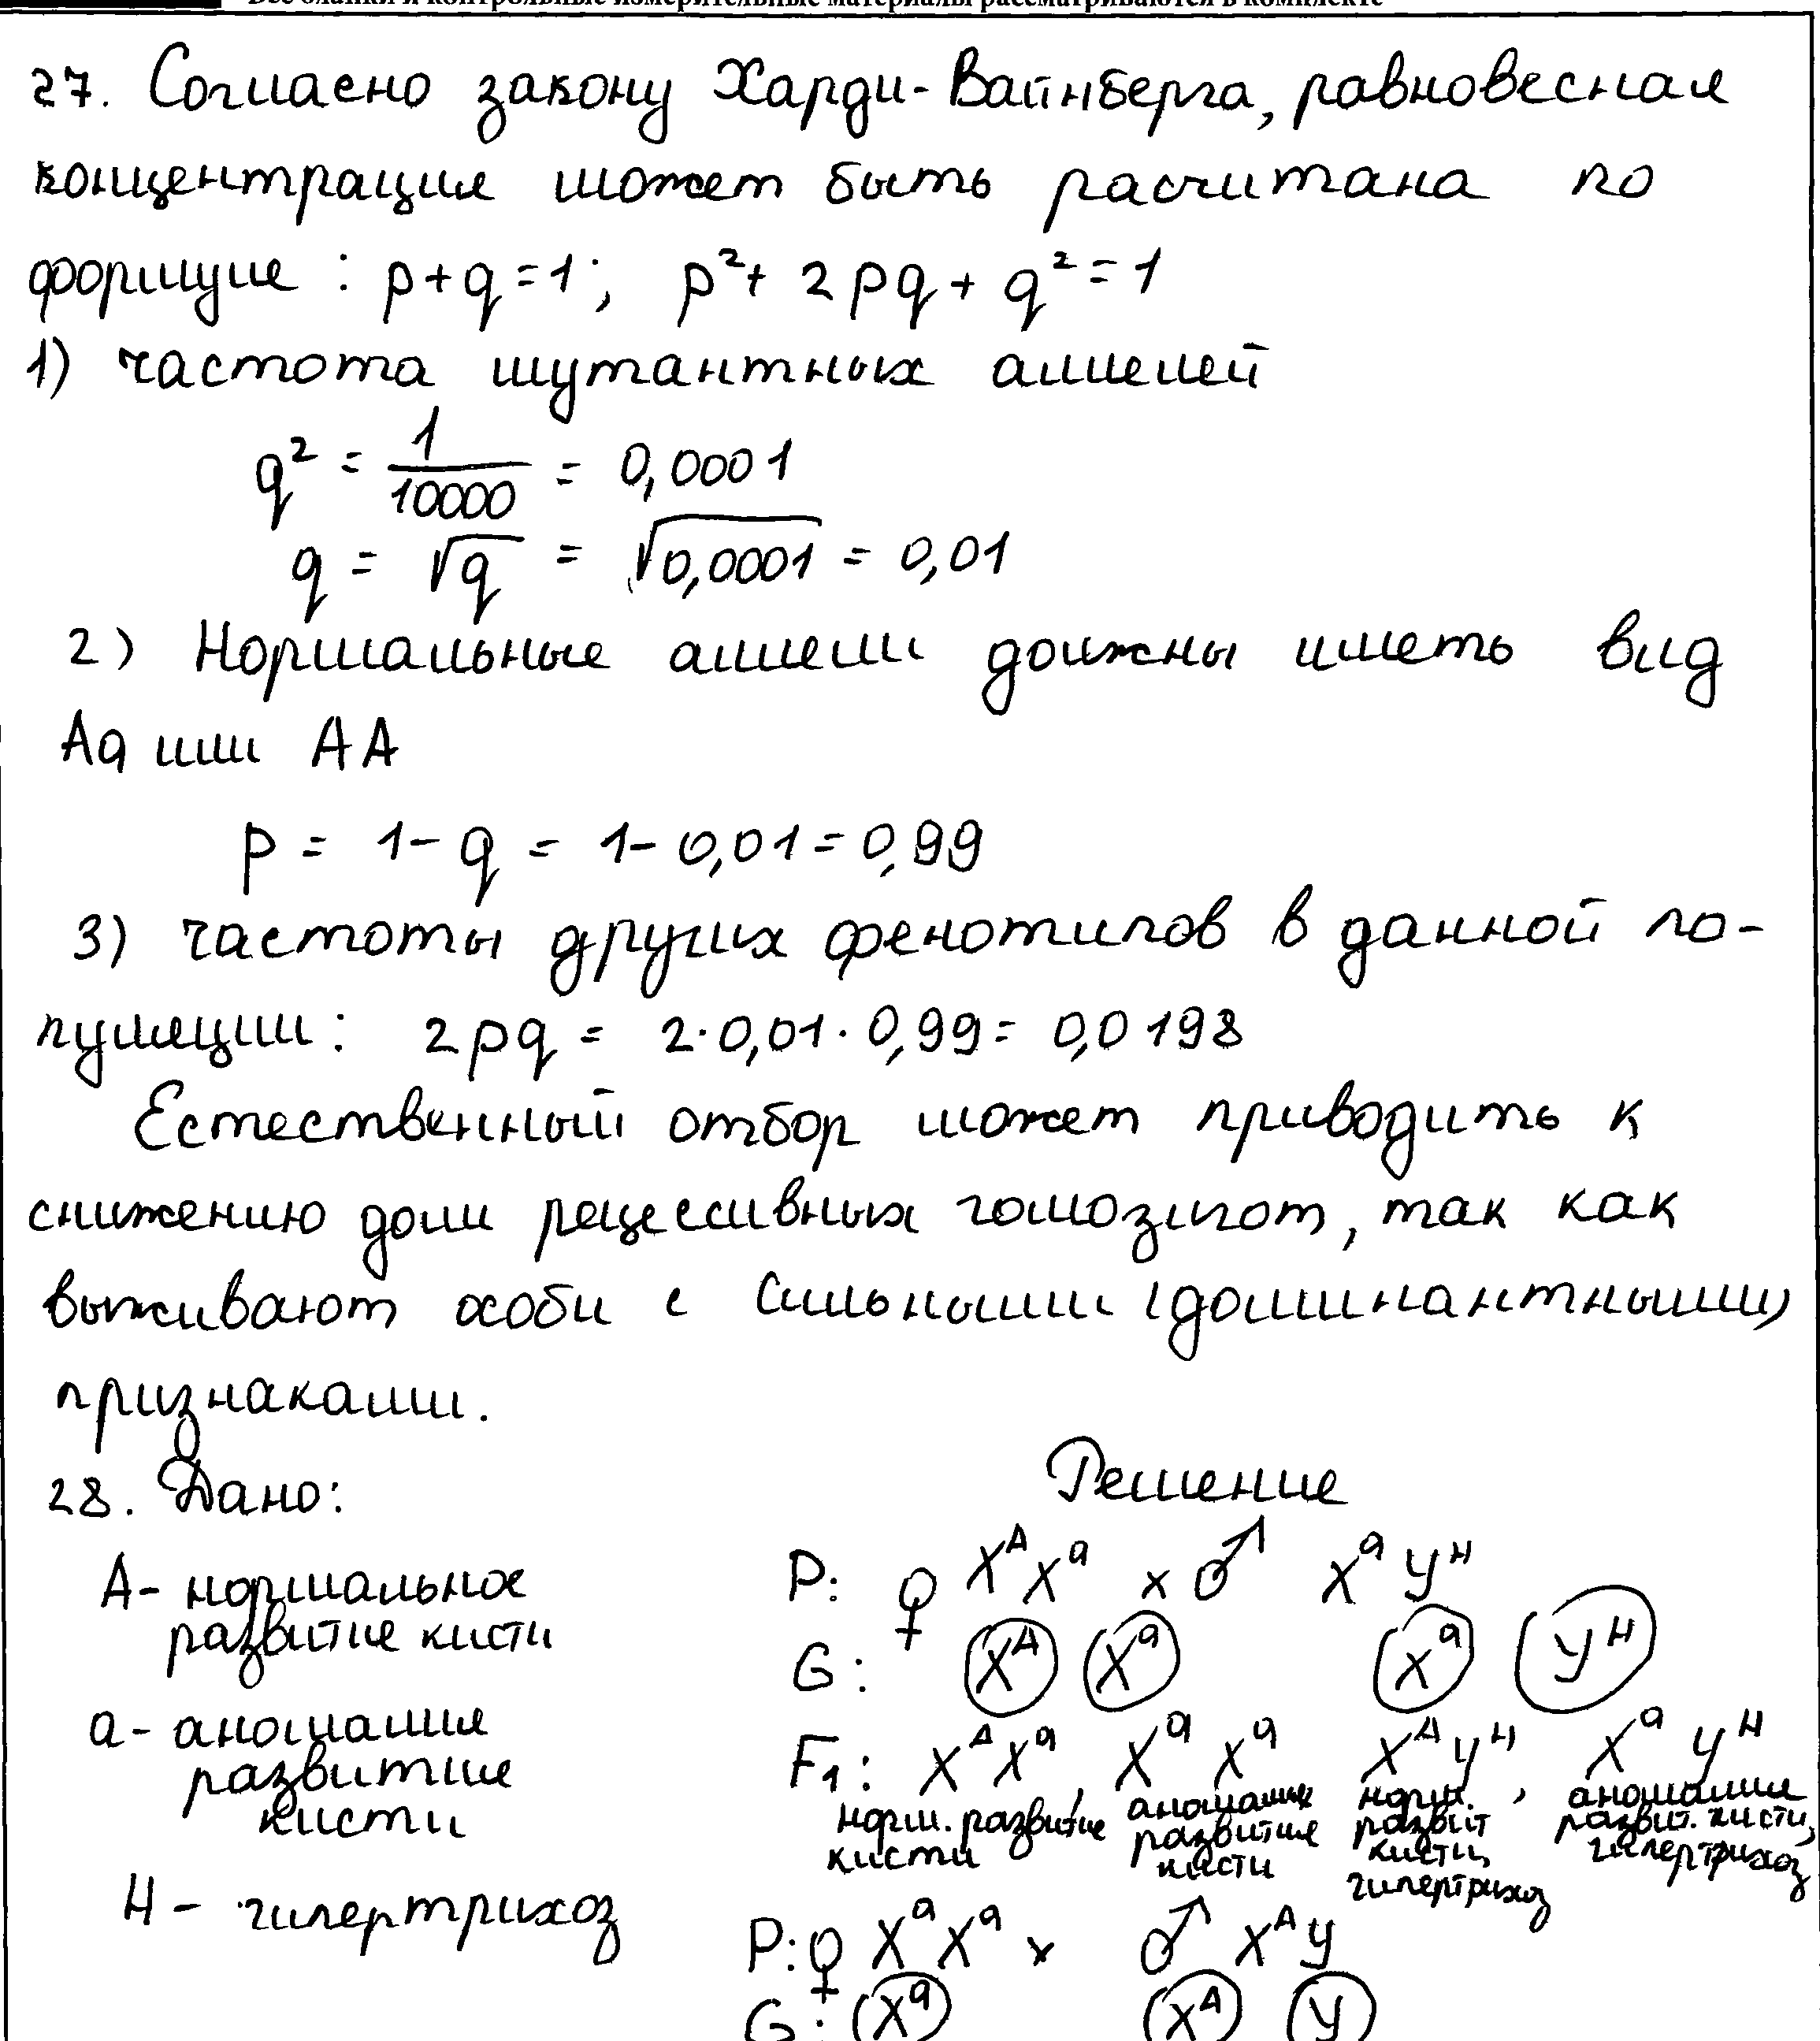 Все бланки и контрольные измерительные материалы рассматриваются в комплекте
27. Согласно закону Харди-Вайнберга, равновесная
концентрация может быть расчитана по
формуле: p+q=1; p²+2pq+q²=1
1) частота мутантных аллелей
q² = 1/10000 = 0,0001
q = √q = √0,0001 = 0,01
2) Нормальные аллели должны иметь вид
Aa или AA
p = 1-q = 1-0,01 = 0,99
3) частоты других фенотипов в данной по-
пуляции: 2pq = 2·0,01·0,99 = 0,0198
Естественный отбор может приводить к
снижению доли рецессивных гомозигот, так как
выживают особи с сильными (доминантными)
признаками.
28. Дано: Решение
A- нормальное
развитие кисти
a- аномалия
развития
кисти
H- гипертрихоз
P: ♀ XᴬXᵃ x ♂ XᵃYᴴ
G: Xᴬ Xᵃ Xᵃ Yᴴ
F₁: XᴬXᵃ, XᵃXᵃ XᴬYᴴ, XᵃYᴴ
норм. развитие
кисти
аномалия
развития
кисти
норм.
развит
кисти,
гипертрихоз
аномалия
развит. кисти,
гипертрихоз
P: ♀ XᵃXᵃ x ♂ XᴬY
G: Xᵃ Xᴬ Y